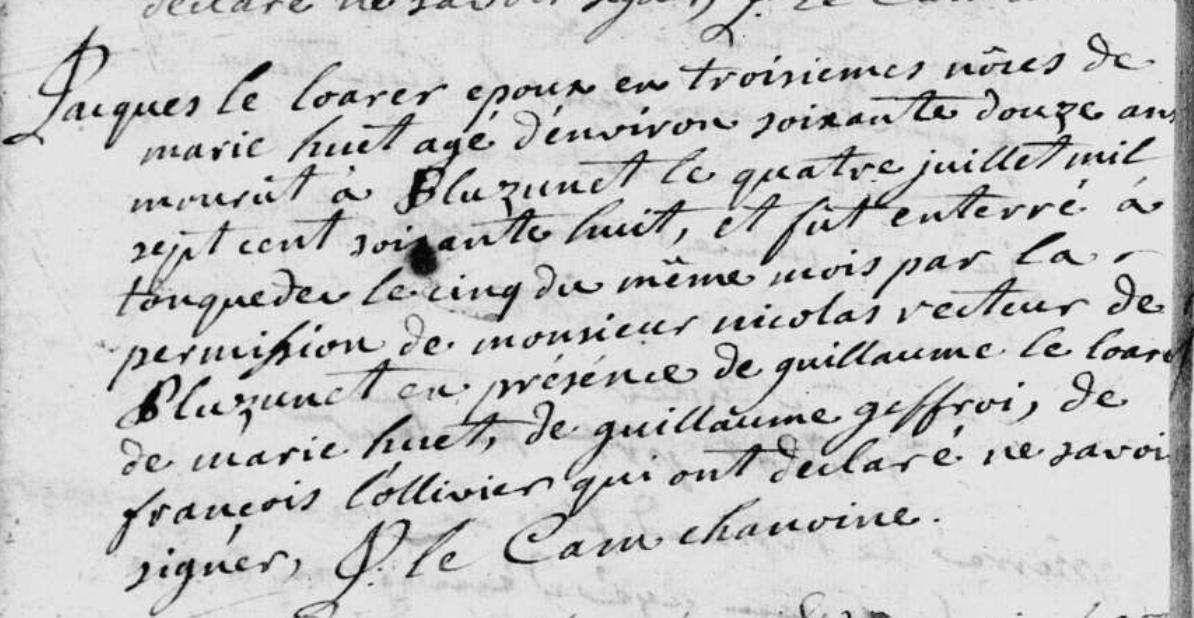 declaré ne savoir signer, P. le Cam
Jacques le loarer epoux en troisiemes nôces de
marie huet agé d'énviron soixante douze ans
mourût à Pluzunet le quatre juillet mil
sept cent soixante huit, et fût enterré à
tonquedec le cinq du même mois par la
permission de monsieur nicolas recteur de
Pluzunet en présénce de guillaume le loarer
de marie huet, de guillaume geffroi, de
françois l'ollivier qui ont declaré ne savoi
signér, P. le Cam chanoine.